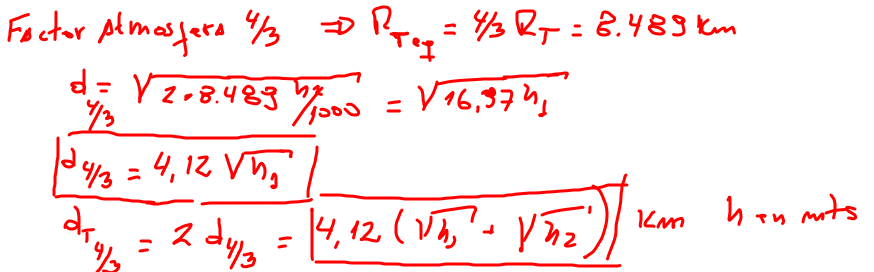 Factor Atmosfera 4/3 ⇒ R_Teq = 4/3 R_T = 8.489 km
d_4/3 = √(2·8.489 h_1/1000) = √(16,97 h_1)
d_4/3 = 4,12 √h_1
d_T4/3 = 2 d_4/3 = 4,12 (√h_1 + √h_2) km h en mts